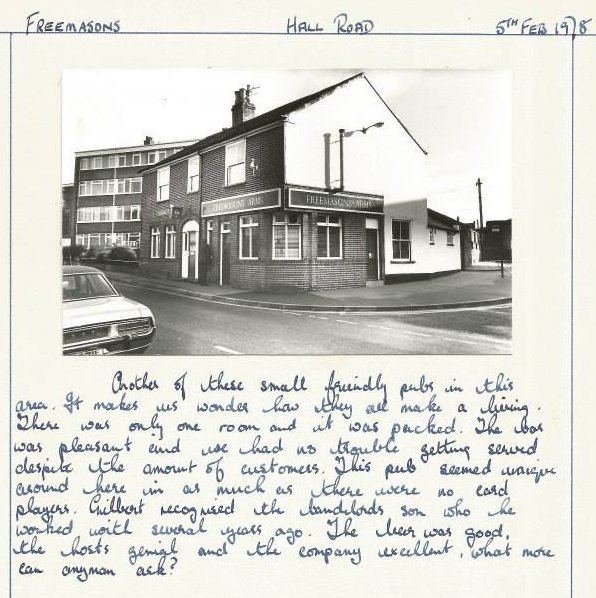 FREEMASONS HALL ROAD 5TH FEB 1978
FREEMASONS ARMS
FREEMASONS ARMS
Another of these small friendly pubs in this
area. It makes us wonder how they all make a living.
There was only one room and it was packed. The bar
was pleasant and we had no trouble getting served
despite the amount of customers. This pub seemed unique
around here in as much as there were no card
players. Gilbert recognised the landlords son who he
worked with several years ago. The beer was good,
the hosts genial and the company excellent, what more
can anyman ask?